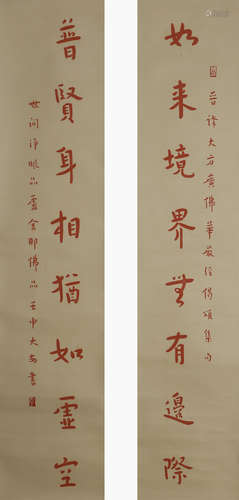 如来境界無有邊際
晉譯大方廣佛華嚴經偈頌集句
普賢身相猶如虛空
世間淨眼品盧舍那佛品 壬申大